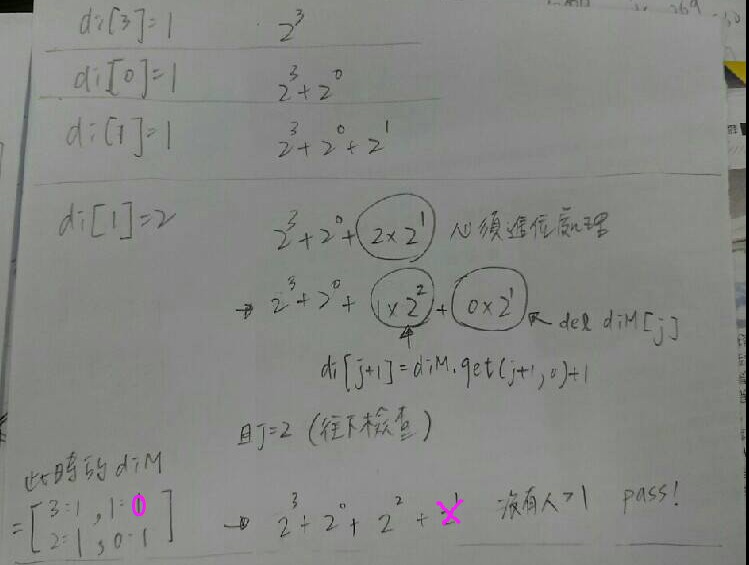 di[3]=1 2^3
di[0]=1 2^3+2^0
di[1]=1 2^3+2^0+2^1
di[1]=2 2^3+2^0+2×2^1 必須進位處理
→ 2^3+2^0+1×2^2+0×2^1 ↖ del diM[j]
di[j+1]=diM.get(j+1,0)+1
且j=2 (往下檢查)
此時的diM
=[3:1, 1:0 → 2^3+2^0+2^2+X 沒有人>1 pass!
2:1, 0:1]